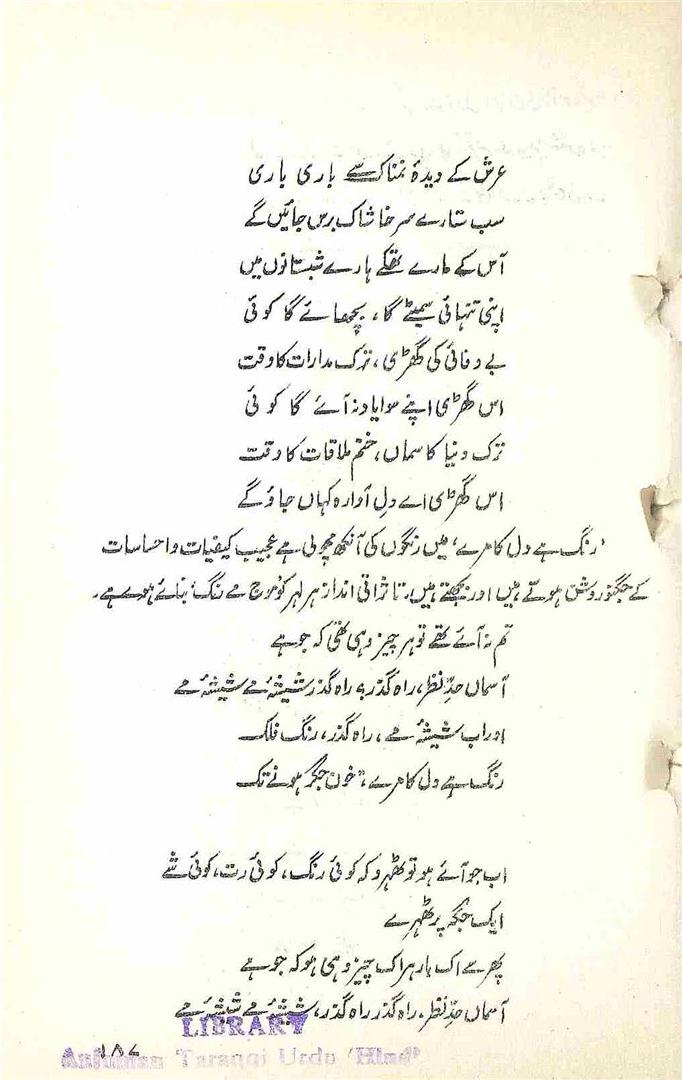 عرش کے دیدۂ نمناک سے باری باری
سب ستارے سرِ خاشاک برس جائیں گے
آس کے مارے تھکے ہارے شبستانوں میں
اپنی تنہائی سمیٹے گا، بچھائے گا کوئی
بے وفائی کی گھڑی، ترک مدارات کا وقت
اس گھڑی اپنے سوا یاد نہ آئے گا کوئی
ترک دنیا کا سماں، ختم ملاقات کا وقت
اس گھڑی اے دلِ آوارہ کہاں جاؤ گے
’رنگ ہے دل کا مرے‘ میں رنگوں کی آنکھ مچولی ہے عجیب کیفیات و احساسات
کے جگنو روشن ہوتے ہیں اور بجھتے ہیں، تاثراتی انداز ہر لہر کو ’موج مے رنگ‘ بنائے ہوئے ہے۔
تم نہ آئے تھے تو ہر چیز وہی تھی کہ جو ہے
آسماں حدِّ نظر، راہ گذر، راہ گذر شیشۂ مے شیشۂ مے
اور اب شیشۂ مے، راہ گذر، رنگ فلک
رنگ ہے دل کا مرے، "خون جگر ہونے تک
اب جو آئے ہو تو ٹھہرو کہ کوئی رنگ، کوئی رت، کوئی شے
ایک جگہ پر ٹھہرے
پھر سے اک بار ہر اک چیز وہی ہو کہ جو ہے
آسماں حدِّ نظر، راہ گذر راہ گذر، شیشۂ مے شیشۂ مے
LIBRARY
Anjuman Taraqqi Urdu 'Hind'